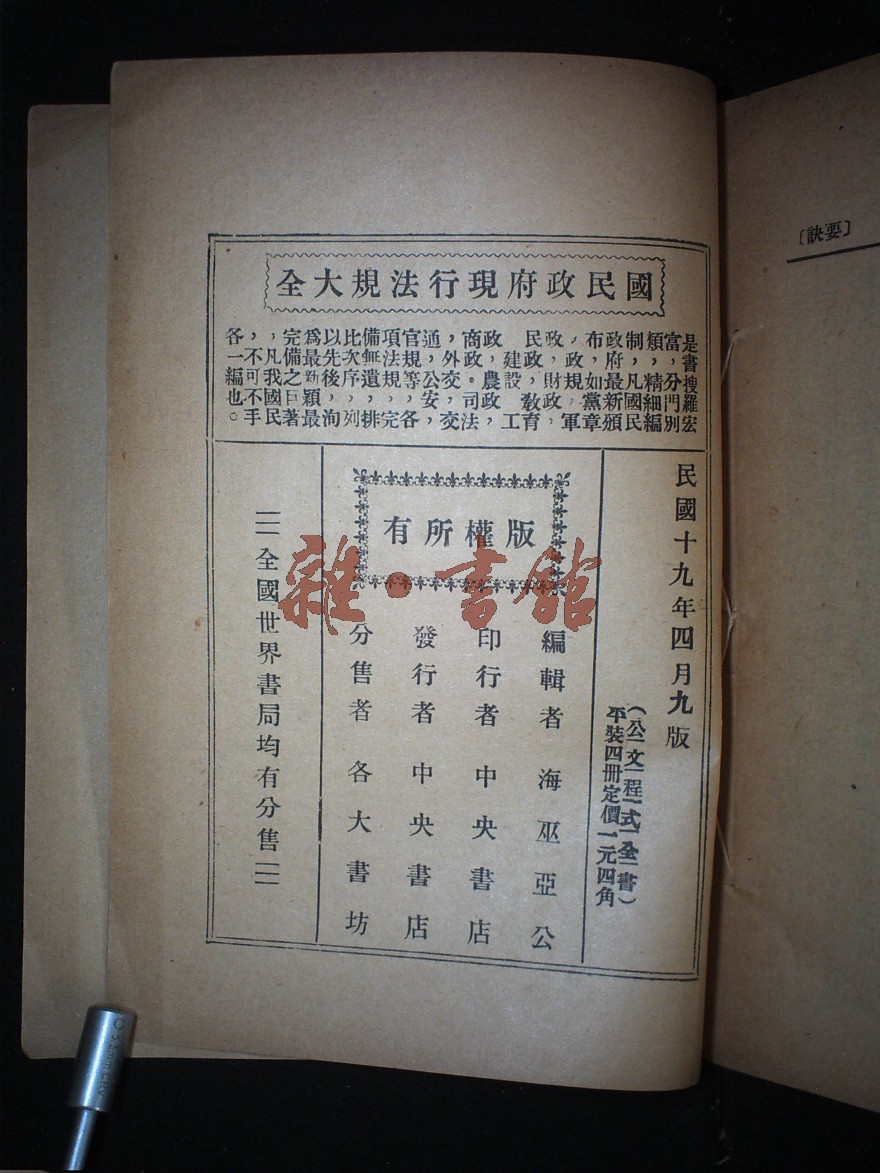 〔要訣〕
國民政府現行法規大全
是書搜羅宏
富，分門別
類，精細編
制，凡國民
政府最新頒
布，規如黨章
政，財政，軍
民政，教育
建設，農工
商政。司法，
，外交，交
通，公安，
官規等，各
項法規，完
備無遺，排
比次序，列
以先後，洵
爲最新穎最
完備之巨著
，凡我國民
，不可不手
各一編也。
民國十九年四月九版
（公文程式全書）
平裝四册定價一元四角
版權所有
編輯者 海巫亞公
印行者 中央書店
發行者 中央書店
分售者 各大書坊
全國世界書局均有分售
雜·書館